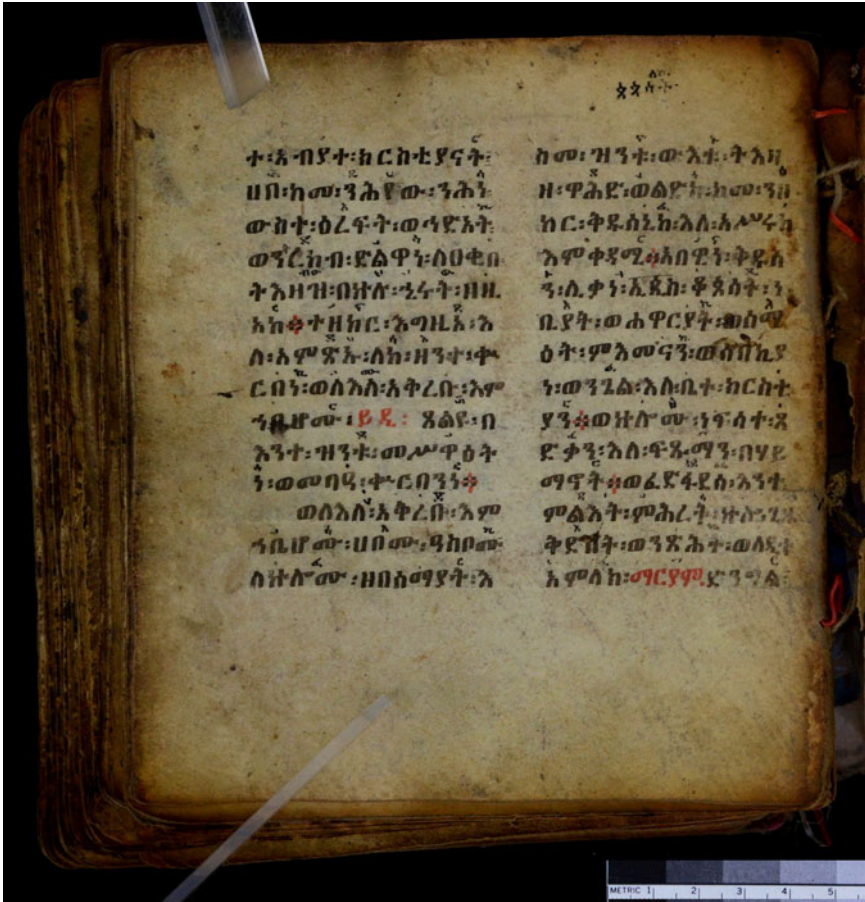 ተ፡አብያተ፡ክርስቲያናት፡
ሀበ፡ከመ፡ንሕየው፡ንሕነ
ውስተ፡ዕረፍት፡ወኅድአት
ወንርከብ፡ድልዋነ፡ለዐቂበ
ትእዛዝ፡በኵሉ፡ኂሩት፡ዘዚ
አከ፨ተዘከር፡እግዚኦ፡እ
ለ፡አምጽኡ፡ለከ፡ዘንተ፡ቍ
ርበነ፡ወለእለ፡አቅረቡ፡እም
ኀቤሆሙ፡ይዲ፡ጸልዩ፡በ
እንተ፡ዝንቱ፡መሥዋዕት
ነ፡ወመባዓ፡ቍርበንነ፨
ወለእለ፡አቅረቡ፡እም
ኀቤሆሙ፡ሀቦሙ፡ዓስቦሙ
ለኵሎሙ፡ዘበሰማያት፡እ
ስመ፡ዝንቱ፡ውእቱ፡ትእዛ
ዘ፡ዋሕድ፡ወልድከ፡ከመ፡ንዘ
ከር፡ቅዱሳኒከ፡እለ፡አሥመሩከ
እምቀዳሚ፨አበዊነ፡ቅዱሳ
ን፡ሊቃነ፡ኤጲስ፡ቆጶሳት፡ነ
ቢያት፡ወሐዋርያት፡ወሰማ
ዕት፡ምእመናን፡ወሰባኪያ
ነ፡ወንጌል፡እለ፡ቤተ፡ክርስቲ
ያን፨ወኵሎሙ፡ነፍሳተ፡ጻ
ድቃን፡እለ፡ፍጹማን፡በሃይ
ማኖት፨ወፈድፋደሰ፡እንተ
ምልእት፡ምሕረት፡
ቅድስት፡ወንጽሕት፡ወላዲተ
አምላክ፡ማርያም፡ድንግል